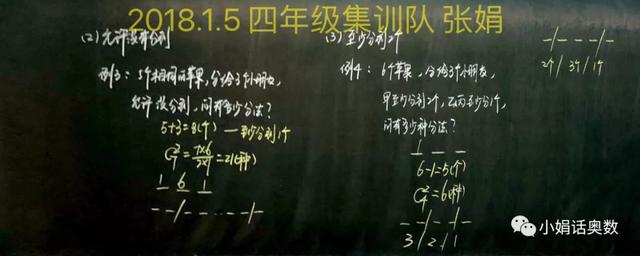 2018.1.5 四年级集训队 张娟
(2) 允许没有分到
例3：5个相同的苹果，分给3个小朋友，
允许没分到，问有多少分法？
5+3=8(个) — 至少分到1个
C₇²=7×6/2×1=21(种)
1 6 1
(3) 至少分到2个
例4：6个苹果，分给3个小朋友，
甲至少分2个，乙丙至少分1个，
问有多少种分法？
1
6-1=5(个)
C₄²=6(种)
3 / 2 / 1
2个 / 3个 / 1个
小娟话奥数